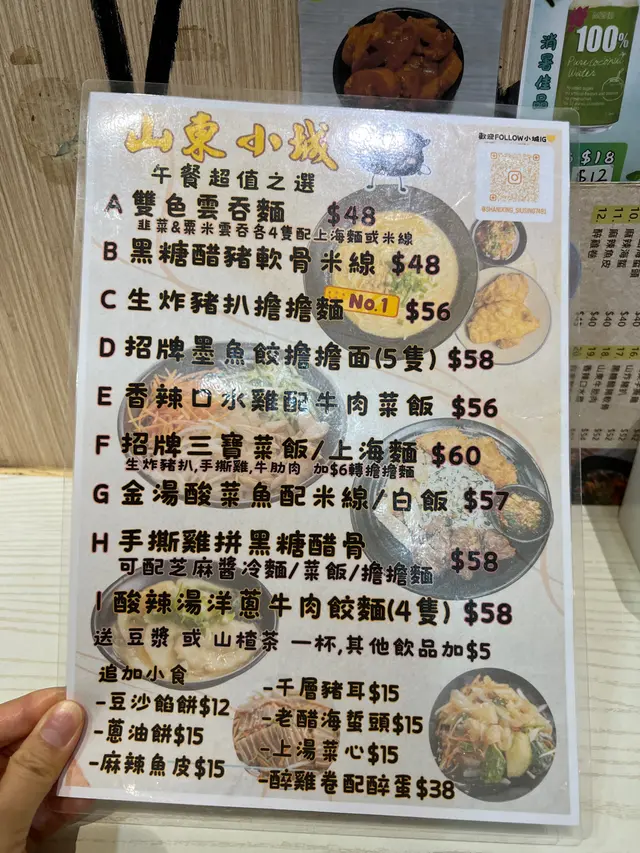 山東小城
歡迎FOLLOW小城IG
午餐超值之選
@SHANDONG_SIUSINGTING
A 雙色雲吞麵 $48
韭菜&粟米雲吞各4隻配上海麵或米線
B 黑糖醋豬軟骨米線 $48
C 生炸豬扒擔擔麵 No.1 $56
D 招牌墨魚餃擔擔面(5隻) $58
E 香辣口水雞配牛肉菜飯 $56
F 招牌三寶菜飯/上海麵 $60
生炸豬扒,手撕雞,牛肋肉 加$6轉擔擔麵
G 金湯酸菜魚配米線/白飯 $57
H 手撕雞拼黑糖醋骨 $58
可配芝麻醬冷麵/菜飯/擔擔麵
I 酸辣湯洋蔥牛肉餃麵(4隻) $58
送 豆漿 或 山楂茶 一杯,其他飲品加$5
追加小食
-豆沙餡餅$12
-蔥油餅$15
-麻辣魚皮$15
-千層豬耳$15
-老醋海蜇頭$15
-上湯菜心$15
-醉雞卷配醉蛋$38
消暑佳品
100%
Pure Coconut
Water
$18
$12